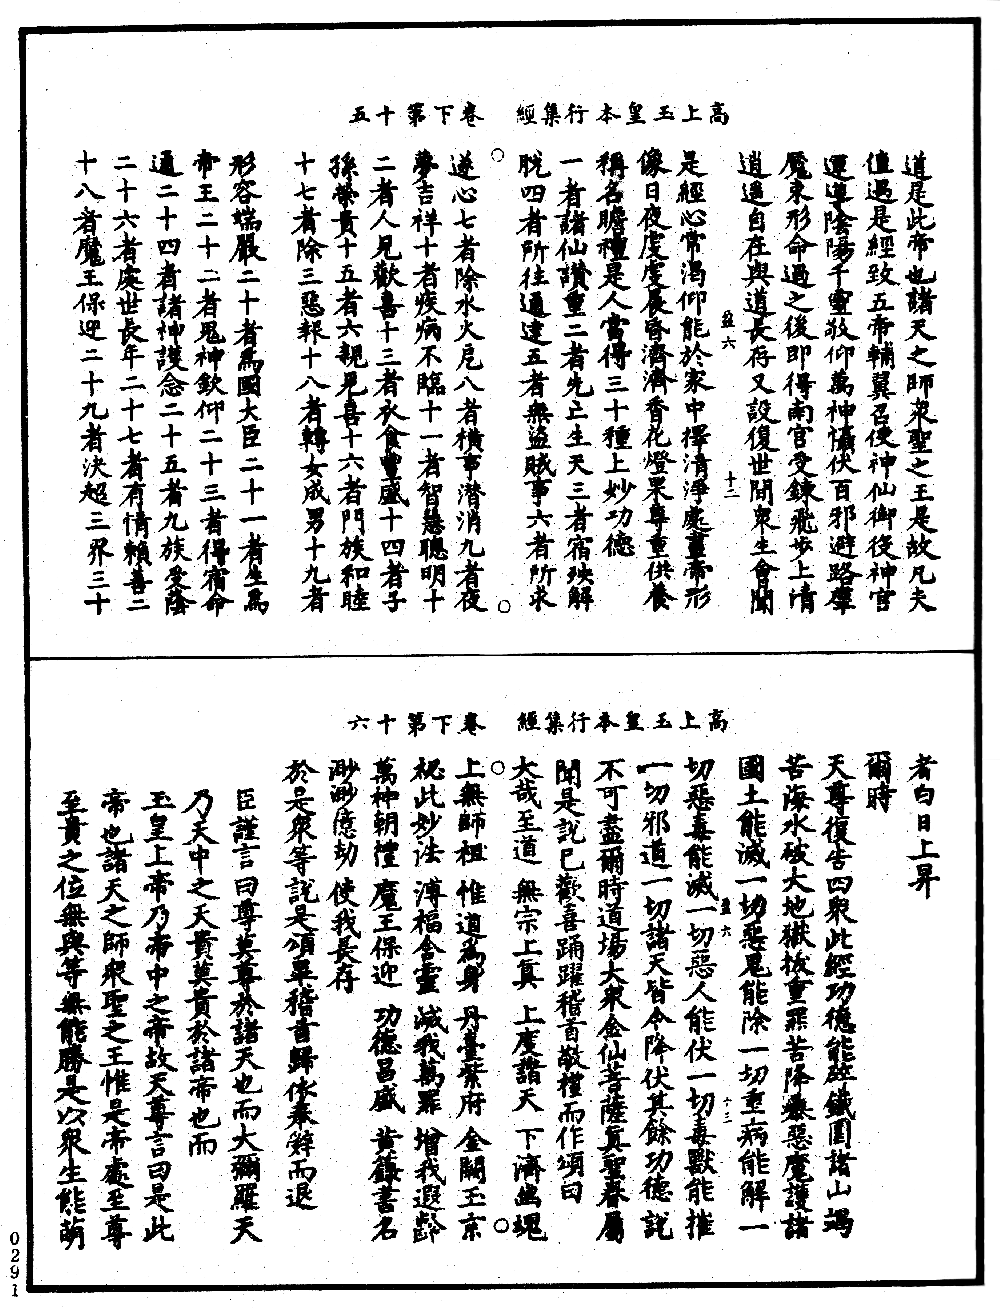 高上玉皇本行集經　卷下第十五
道是此帝也諸天之師衆聖之王是故凡夫
值遇是經致五帝輔翼召使神仙御役神官
運導陰陽千靈敬仰萬神懾伏百邪避路羣
魔束形命過之後即得南宮受鍊飛步上清
逍遥自在與道長存又設復世間衆生會聞
盈六　十二
是經心常渴仰能於家中擇清淨處畫帝形
像日夜度度晨昏濟濟香花燈果尊重供養
稱名瞻禮是人當得三十種上妙功德
一者諸仙讚重二者先亡生天三者宿殃解
脫四者所往通達五者無盜賊事六者所求
遂心七者除水火厄八者横事潜消九者夜
夢吉祥十者疾病不臨十一者智慧聰明十
二者人見歡喜十三者衣食豐盛十四者子
孫榮貴十五者六親見喜十六者門族和睦
十七者除三惡報十八者轉女成男十九者
形容端嚴二十者爲國大臣二十一者生爲
帝王二十二者鬼神欽仰二十三者得宿命
通二十四者諸神護念二十五者九族受蔭
二十六者處世長年二十七者有情賴善二
十八者魔王保迎二十九者決超三界三十
高上玉皇本行集經　卷下第十六
者白日上昇
爾時
天尊復告四衆此經功德能碎鐵圍諸山竭
苦海水破大地獄拔重罪苦降暴惡魔護諸
國土能滅一切惡鬼能除一切重病能解一
切惡毒能滅一切惡人能伏一切毒獸能摧
盈六　十三
一切邪道一切諸天皆令降伏其餘功德說
不可盡爾時道場大衆金仙菩薩眞聖眷屬
聞是說已歡喜踊躍稽首敬禮而作頌曰
大哉至道　無宗上眞　上度諸天　下濟幽魂
上無師祖　惟道爲身　丹臺紫府　金闕玉京
祝此妙法　溥福含靈　滅我萬罪　增我遐齡
萬神朝禮　魔王保迎　功德昌盛　黄籙書名
渺渺億劫　使我長存
於是衆等說是頌畢稽首歸依奉辤而退
臣謹言曰尊莫尊於諸天也而大彌羅天
乃天中之天貴莫貴於諸帝也而
玉皇上帝乃帝中之帝故天尊言曰是此
帝也諸天之師衆聖之王惟是帝處至尊
至貴之位無與等無能勝是以衆生能萌
0291